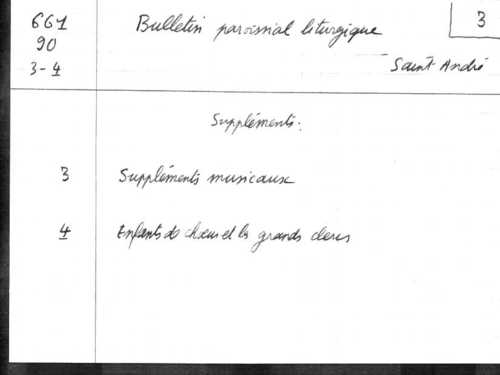 661
90
3-4
Bulletin paroissial liturgique
3
Saint André
Suppléments:
3 Suppléments musicaux
4 Enfants de chœur et les grands clercs